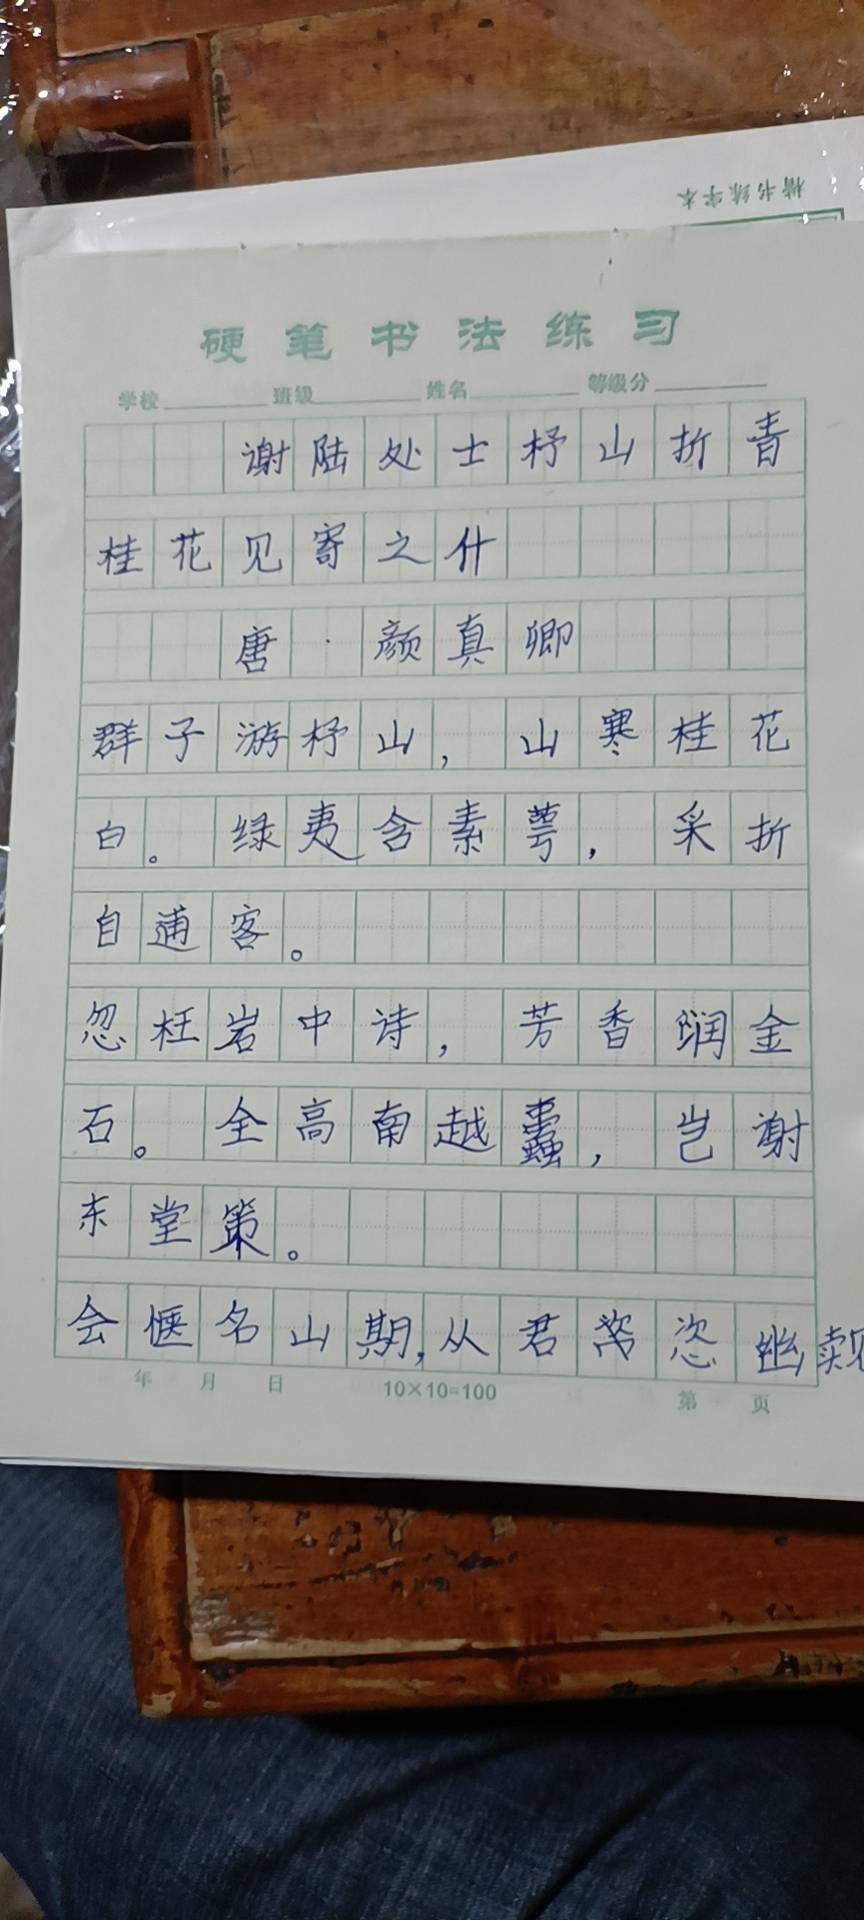 楷书练字本
硬笔书法练习
学校 班级 姓名 等级分
谢陆处士杼山折青
桂花见寄之什
唐·颜真卿
群子游杼山，山寒桂花
白。绿荑含素萼，采折
自逋客。
忽枉岩中诗，芳香润金
石。全高南越蠹，岂谢
东堂策。
会惬名山期，从君恣幽觌
年 月 日 10×10=100 第 页